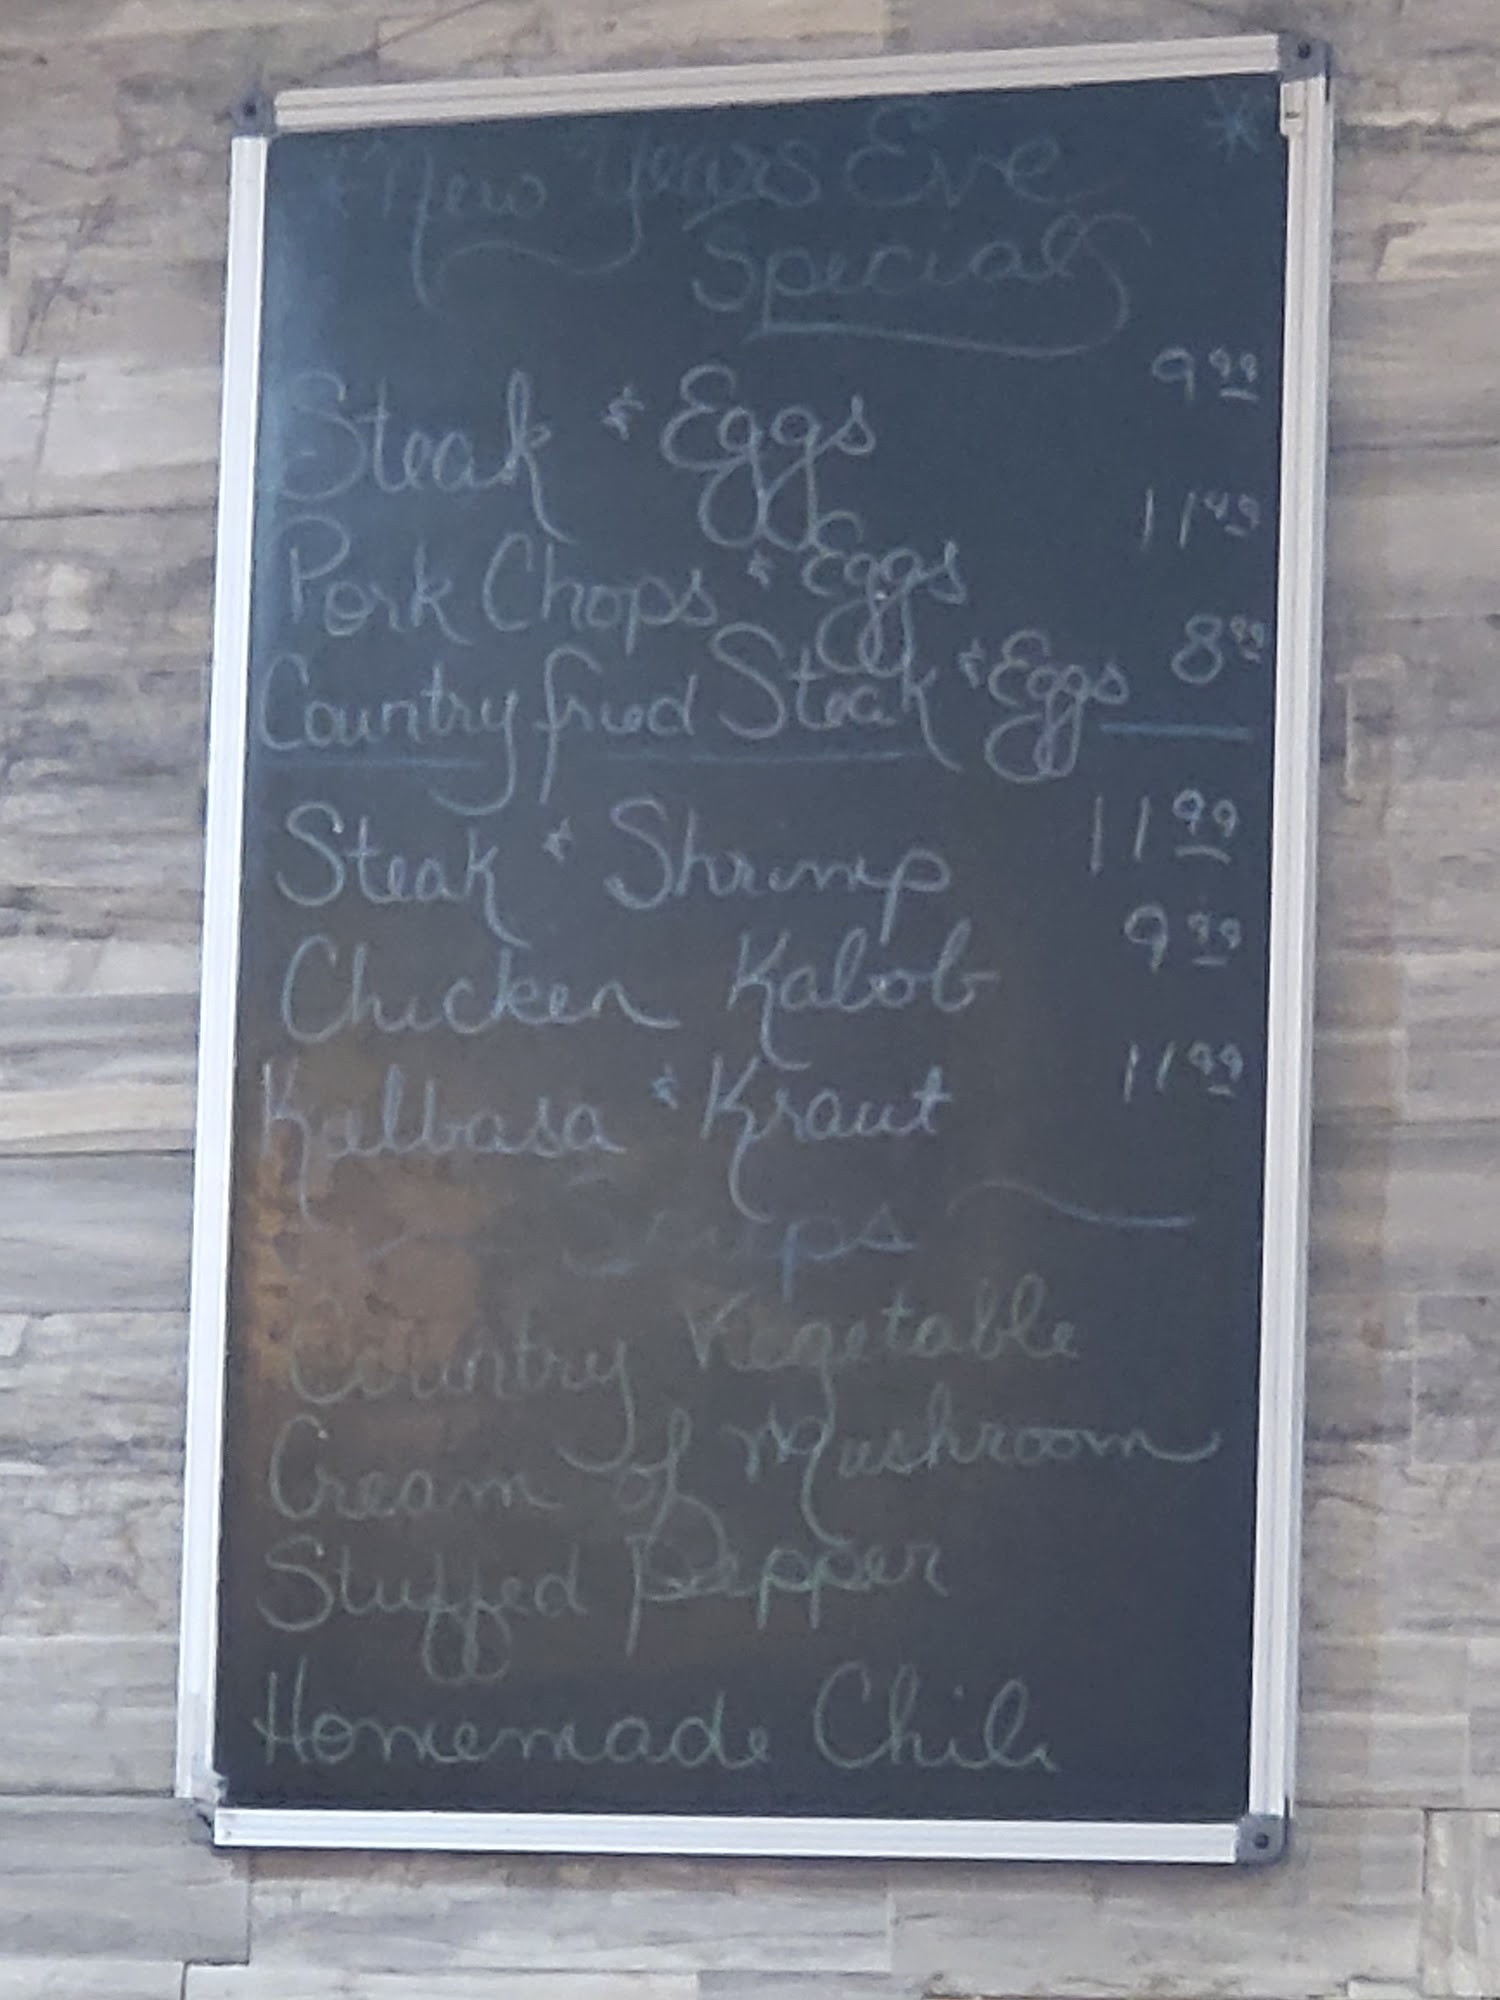 * New Years Eve *
Specials
Steak & Eggs 9.99
Pork Chops & Eggs 11.49
Country fried Steak & Eggs 8.99
Steak & Shrimp 11.99
Chicken Kabob 9.99
Kielbasa & Kraut 11.99
Soups
Country Vegetable
Cream of Mushroom
Stuffed Pepper
Homemade Chili